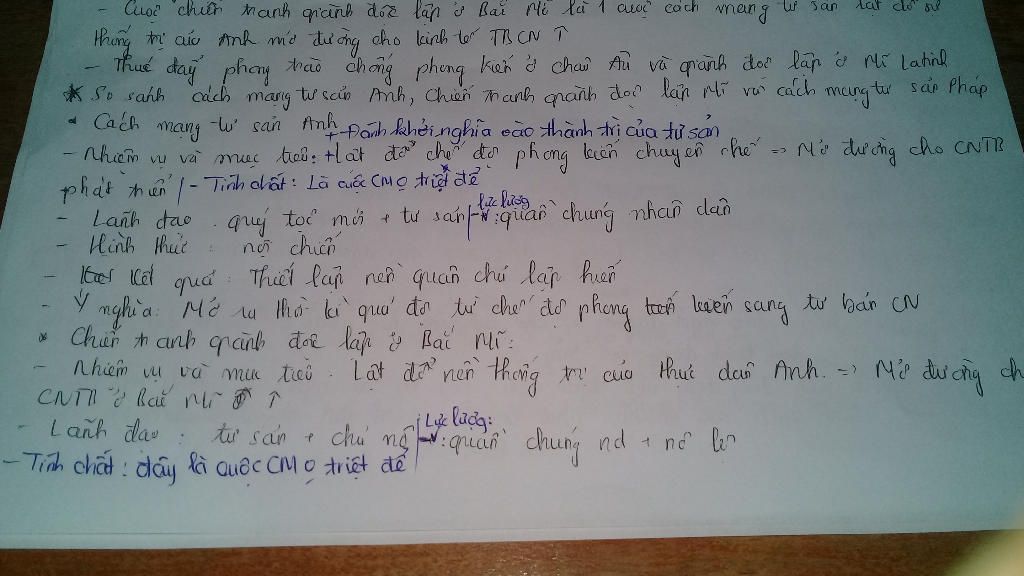 - Cuộc chiến tranh giành độc lập ở Bắc Mĩ là 1 cuộc cách mạng tư sản lật đổ sự
thống trị của Anh mở đường cho kinh tế TBCN ↑
- Thúc đẩy phong trào chống phong kiến ở châu Âu và giành độc lập ở Mĩ Latinh
* So sánh cách mạng tư sản Anh, Chiến tranh giành độc lập Mĩ và cách mạng tư sản Pháp
• Cách mạng tư sản Anh
+ Đánh khởi nghĩa vào thành trì của tư sản
- Nhiệm vụ và mục tiêu: + Lật đổ chế độ phong kiến chuyên chế => Mở đường cho CNTB
phát triển | - Tính chất: Là cuộc CM ko triệt để
- Lãnh đạo: quý tộc mới + tư sản | - lực lượng: quần chúng nhân dân
- Hình thức: nội chiến
- Kết quả: Thiết lập nền quân chủ lập hiến
- Ý nghĩa: Mở ra thời kì quá độ từ chế độ phong kiến sang tư bản CN
* Chiến tranh giành độc lập ở Bắc Mĩ:
- Nhiệm vụ và mục tiêu: Lật đổ nền thống trị của thực dân Anh. => Mở đường ch
CNTB ở Bắc Mĩ ↑
- Lãnh đạo: tư sản + chủ nô | - Lực lượng: quần chúng nd + nô lệ
- Tính chất: đây là cuộc CM ko triệt để